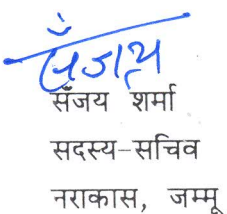 संजय
संजय शर्मा
सदस्य-सचिव
नराकास, जम्मू